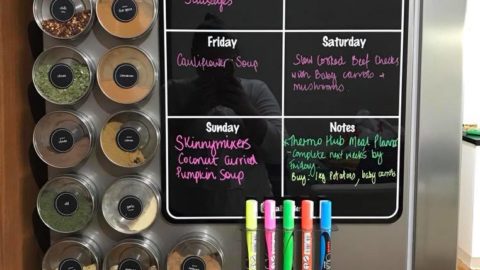 Sausages
Friday
Cauliflower Soup
Saturday
Slow Cooked Beef Cheeks
with Baby carrots +
mushrooms
Sunday
Skinnymixers
Coconut Curried
Pumpkin Soup
Notes
Thermo Hub Meal Planner
- Complete next weeks by
Friday.
Buy: 1kg Potatoes, baby carrots